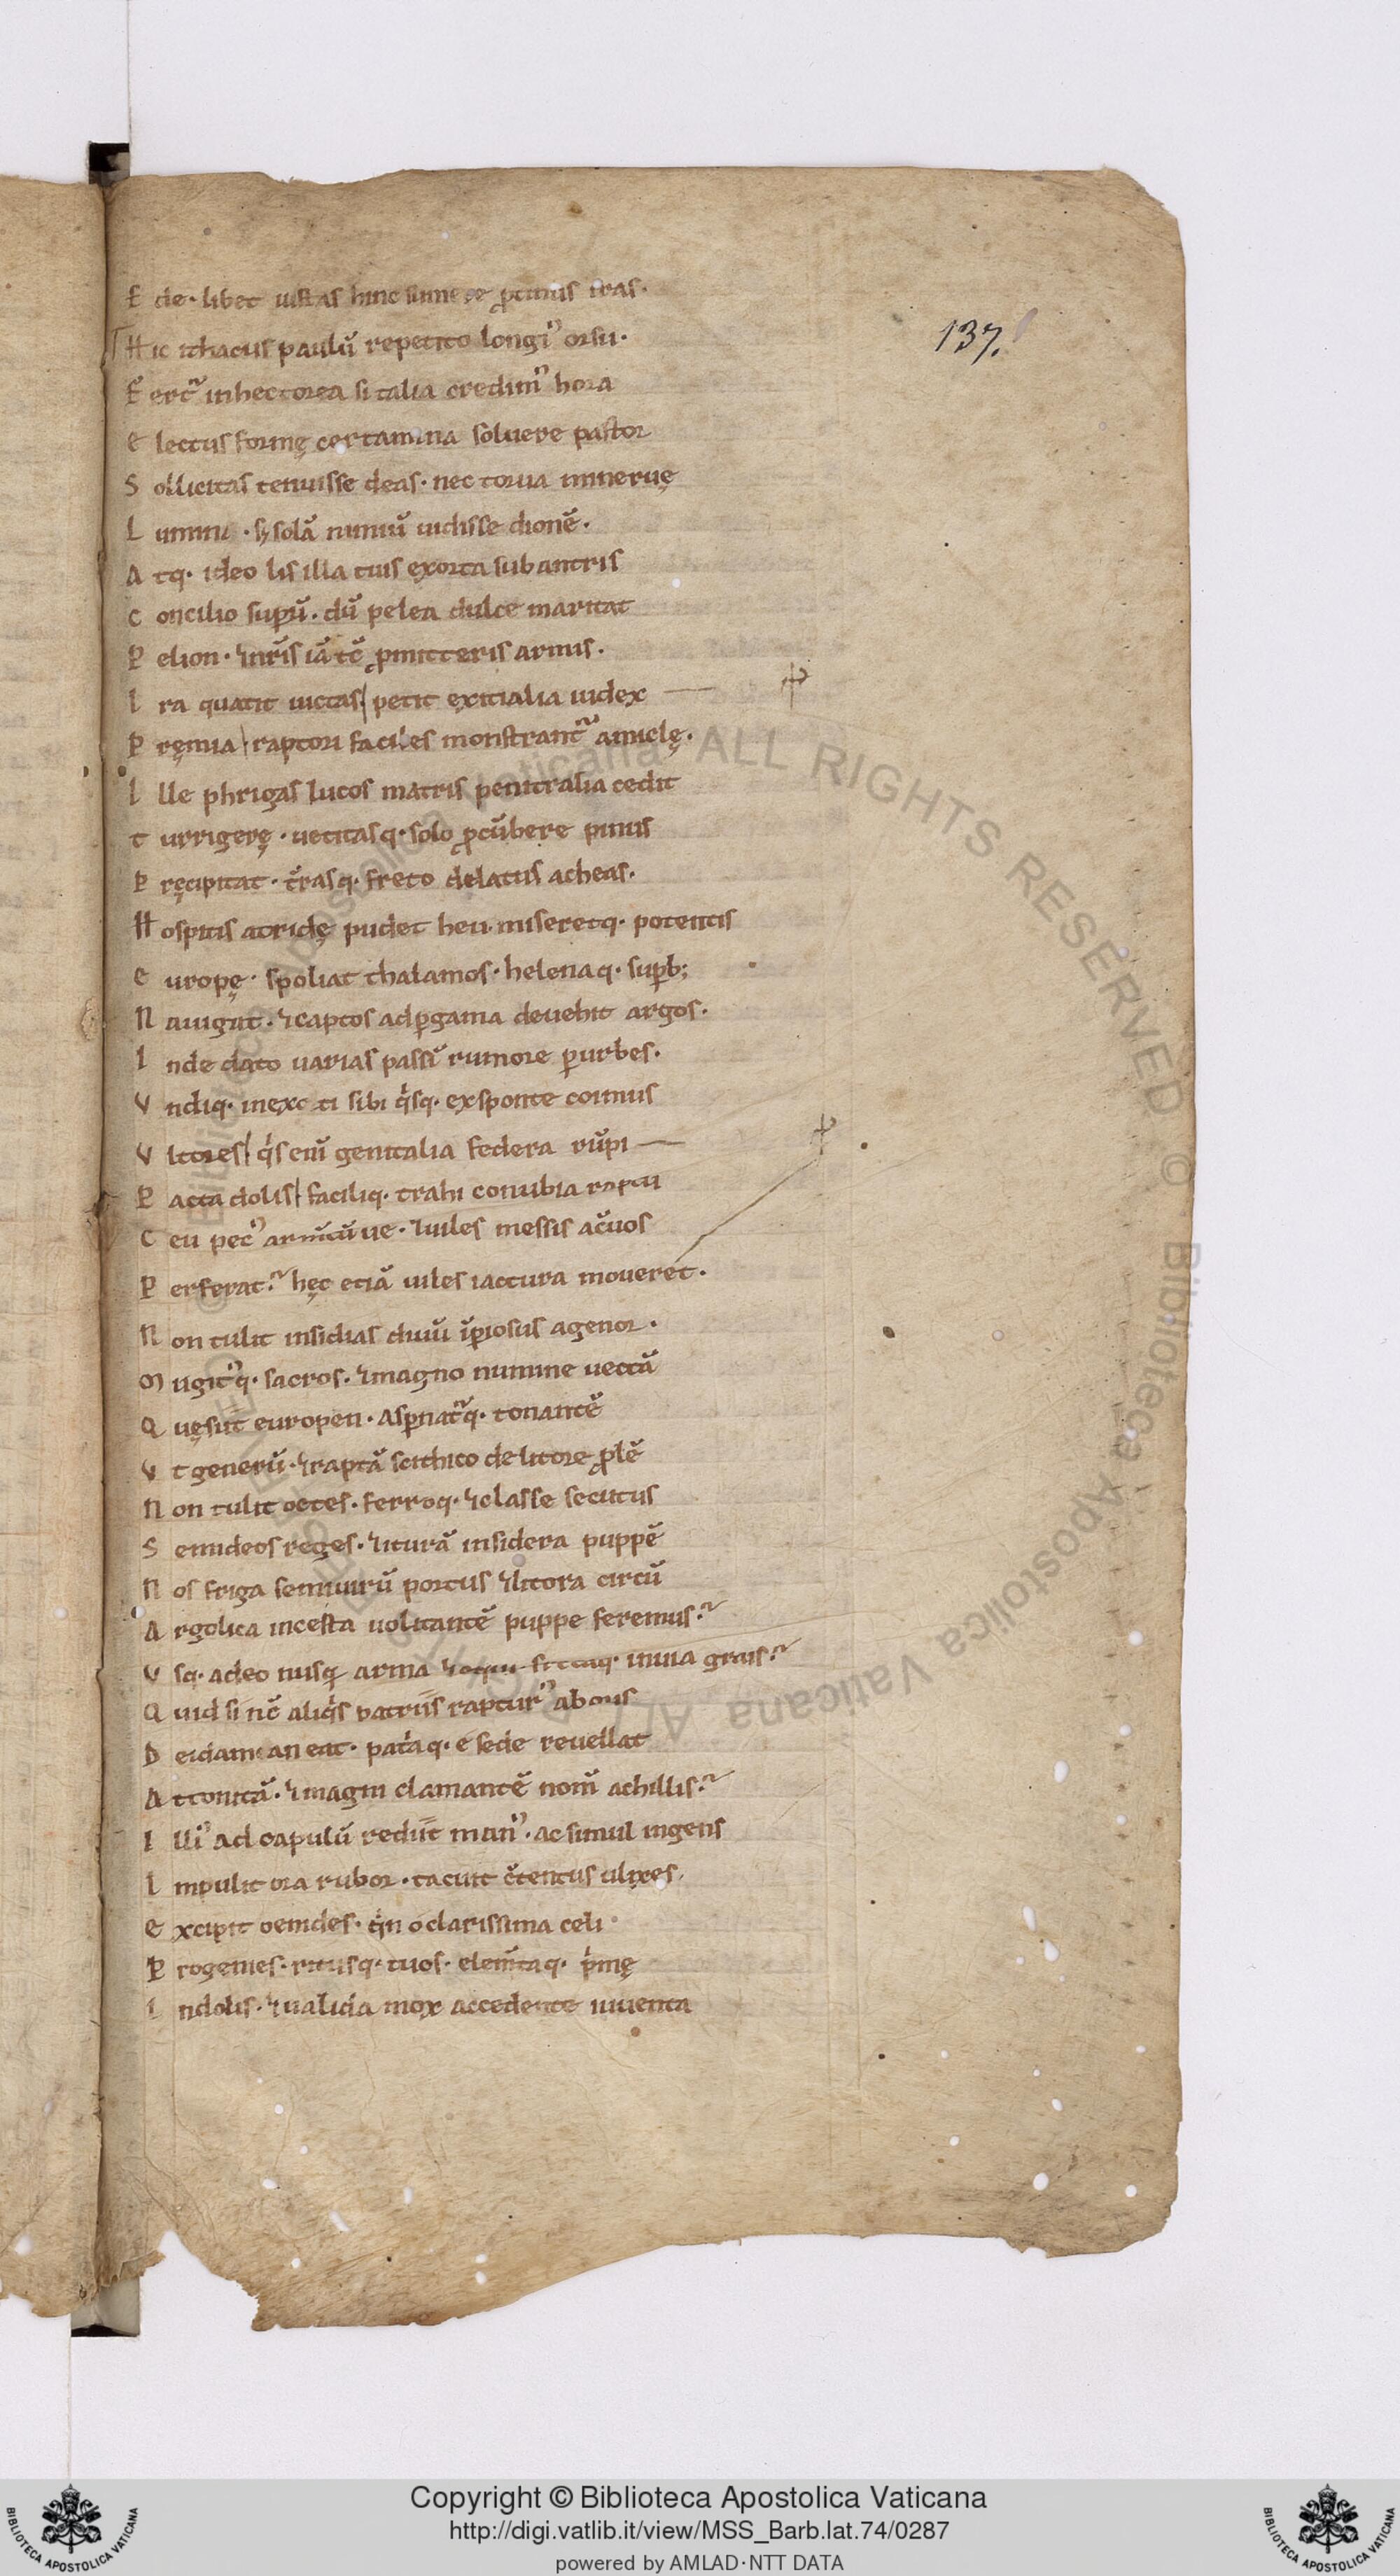 E de · libet iustas hinc sumere ꝓtinus iras ·
137.
H ic ithacus paulũ repetito longiꝰ orsu ·
F ert᷑ in hectorea si talia credimꝰ hora
e lectus formę certamina soluere pastor
S ollicitas tenuisse deas · nec torua mineruę
L umina · sꝫ solā nimiū uidisse dionē ·
A tq· ideo lis illa tuis exorta sub antris
C oncilio suꝑū · dū pelea dulce maritat
P elion · ⁊ nr̄is iā tē ꝓmitteris armis ·
I ra quatit uictas | petit exitialia iudex
P ręmia | raptori faciles monstrant᷑ amiclę ·
I lle phrigas lucos matris penitralia cedit
t urrigerę · uetitasq· solo ꝓcūbere pinus
P ręcipitat · t̄rasq· freto delatus acheas ·
H ospitis atridę pudet heu· miseretq· potentis
e uropę · spoliat thalamos · helenaq· suꝑb;
N auigat · ⁊ captos ad ꝑgama deuehit argos ·
I nde dato uarias passī rumore ꝑ urbes ·
V ndiq· inexciti sibi qͥsq· ex sponte coimus
V ltores | qͥs enī genitalia federa rūpi
P acta dolis | faciliq· trahi conubia raptu
C eu pecꝰ armētū ue · ⁊ uiles messis ac̄uos
P erferat? hęc etiā uiles iactura moueret ·
N on tulit insidias diuū iꝑiosus agenor ·
M ugitꝰq· sacros · ⁊ magno numine uectā
Q uęsiit europen · Asꝑnat᷑q· tonantē
V t generū · ⁊ raptā scithico de litore ꝓlē
N on tulit oetes · ferroq· ⁊ classe secutus
S emideos reges · ⁊ iturā in sidera puppē
N os friga semiuirū portus ⁊ litora circū
A rgolica incesta uolitantē puppe feremus?
V sq· adeo nusꝗ arma ⁊ equi fretaq· inuia grais?
Q uid si nc̄ aliqͥs patriis rapturꝰ ab oris
D eidamian eat · pat̄aq· e sede reuellat
A ttonitā · ⁊ magni clamantē nom̄ achillis?
I lliꝰ ad capulū rediit manꝰ · ac simul ingens
I mpulit ora rubor · tacuit c̄tentus ulixes ·
e xcipit oenides · qͥn o clarissima celi
P rogenies · ritusq· tuos · elem̄taq· pͥmę
I ndolis · ⁊ ualida mox accedente iuuenta
Copyright © Biblioteca Apostolica Vaticana
http://digi.vatlib.it/view/MSS_Barb.lat.74/0287
powered by AMLAD·NTT DATA